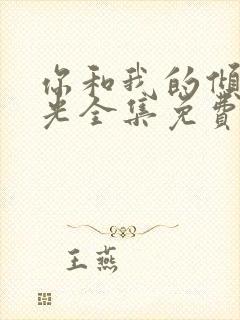 你和我的倾
光全集免費
王燕